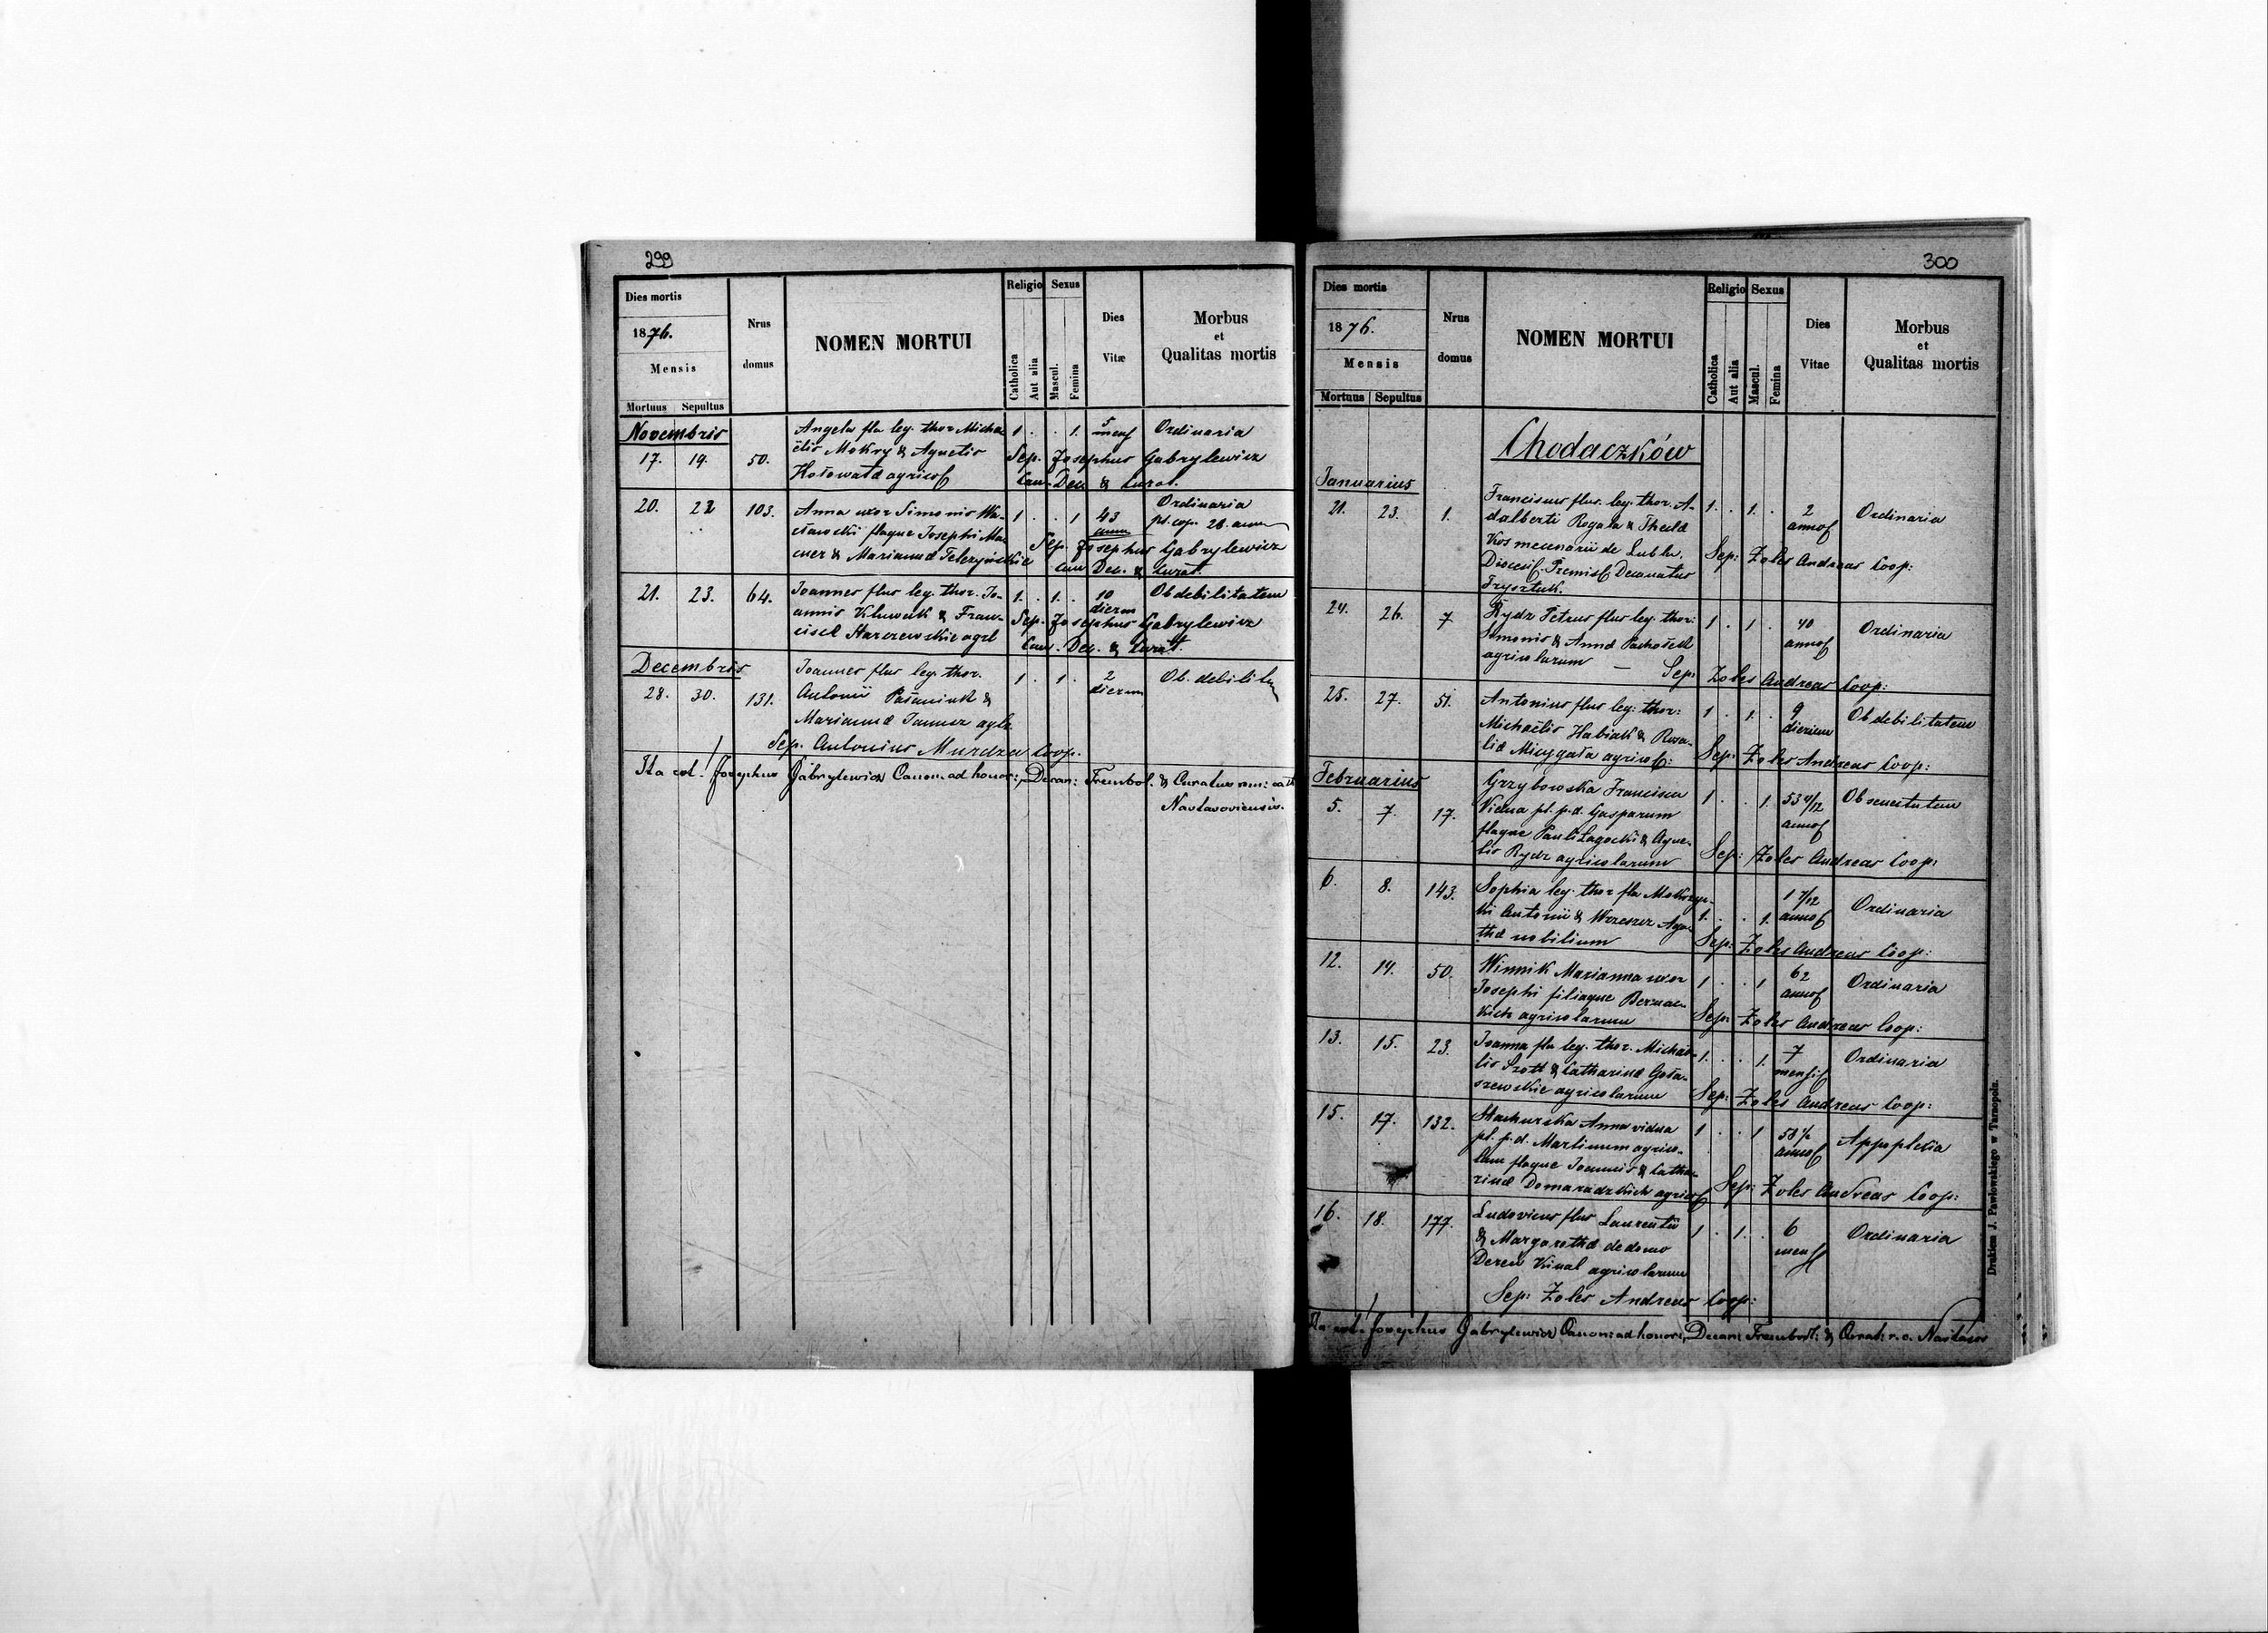 299
Dies mortis
1876.
Mensis
Mortuus Sepultus
Nrus domus
NOMEN MORTUI
Religio Sexus
Catholica Aut alia Mascul. Femina
Dies Vitæ
Morbus
et
Qualitas mortis
Novembris
17. 19. 50. Angela fla leg. thor Micha- 1 . . 1. 5 mens Ordinaria
ëlis Mokry & Agnetis Sep. Josephus Gabrylewicz
Hołowata agricol Can. Dec. & Curat.
20. 22 103. Anna uxor Simonis 1 . . 1 43 ann Ordinaria
flaque Josephi pt. cop. 28. ann
& Mariannæ Sep. Josephus Gabrylewicz
Can Dec. & Curat.
21. 23. 64. Joannes flus leg. thor. Jo- 1. . 1. . 10 dierm Ob debilitatem
annis & Fran- Sep. Josephus Gabrylewicz
ciscæ agrl Can. Dec. & Curat.
Decembris
28. 30. 131. Joannes flus leg. thor. 1 . 1 . 2 dierum Ob. debilit
Antonii &
Mariannæ Janusz agle
Sep. Antonius Murdza Coop.
Ita est! Josephus Gabrylewicz Canon: ad honor:, Decan: Trembol. & Curatus rom: cath
Nastasoviensis.
300
Dies mortis
1876.
Mensis
Mortuus Sepultus
Nrus domus
NOMEN MORTUI
Religio Sexus
Catholica Aut alia Mascul. Femina
Dies Vitae
Morbus
et
Qualitas mortis
Chodaczków
Januarius
21. 23. 1. Franciscus flus. leg. thor. A- 1. . 1. . 2 annos Ordinaria
dalberti Rogala & Theclæ
Kos mercenarii de Lubla, Sep: Zoles Andreas Coop:
Diocesis Premisl Decanatus
Frysztak.
24. 26. 7 Rydz Petrus flus leg. thor: 1 . 1 . 40 annos Ordinaria
Simonis & Annæ
agricolarum — Sep: Zoles Andreas Coop:
25. 27. 51. Antonius flus leg: thor: 1 . 1. . 9 dierum Ob debilitatem
Michaëlis Habiak & Rosa-
liæ agricol: Sep: Zoles Andreas Coop:
Februarius
5. 7. 17. Grzybowska Francisca 1 . . 1. 53 annos Ob senectutem
Vidua pt. p.d. Gasparum
flaque Pauli Zagocki & Agne-
tis Rydz agricolarum Sep: Zoles Andreas Coop:
6. 8. 143. Sophia leg. thor fla Mokrzyc- 1. . . 1. 1 7/12 annos Ordinaria
ki Antonii & Wrzeszcz Aga-
thæ nobilium Sep: Zoles Andreas Coop:
12. 14. 50. Winnik Marianna uxor 1 . . 1 62 annos Ordinaria
Josephi filiaque Bernac-
kich agricolarum Sep: Zoles Andreas Coop:
13. 15. 23. Joanna fla leg. thor. Michaë- 1. . . 1. 7 mensis Ordinaria
lis Szott & Catharinæ Gola-
szewskie agricolarum Sep: Zoles Andreas Coop:
15. 17. 132. Stachurska Anna vidua 1 . . 1 annos Appoplexia
pt. p.d. Martinum agrico-
lam flaque Joannis & Catha-
rinæ Domaradzkich agricol Sep: Zoles Andreas Coop:
16. 18. 177. Ludovicus flus Laurentii 1 . 1. . 6 mens Ordinaria
& Margarethæ de domo
Deren Kinal agricolarum
Sep: Zoles Andreas Coop:
Ita est! Josephus Gabrylewicz Canon: ad honor:, Decan: Trembowl: & Curat: r. c. Nastasov
Drukiem J. Pawłowskiego w Tarnopolu.